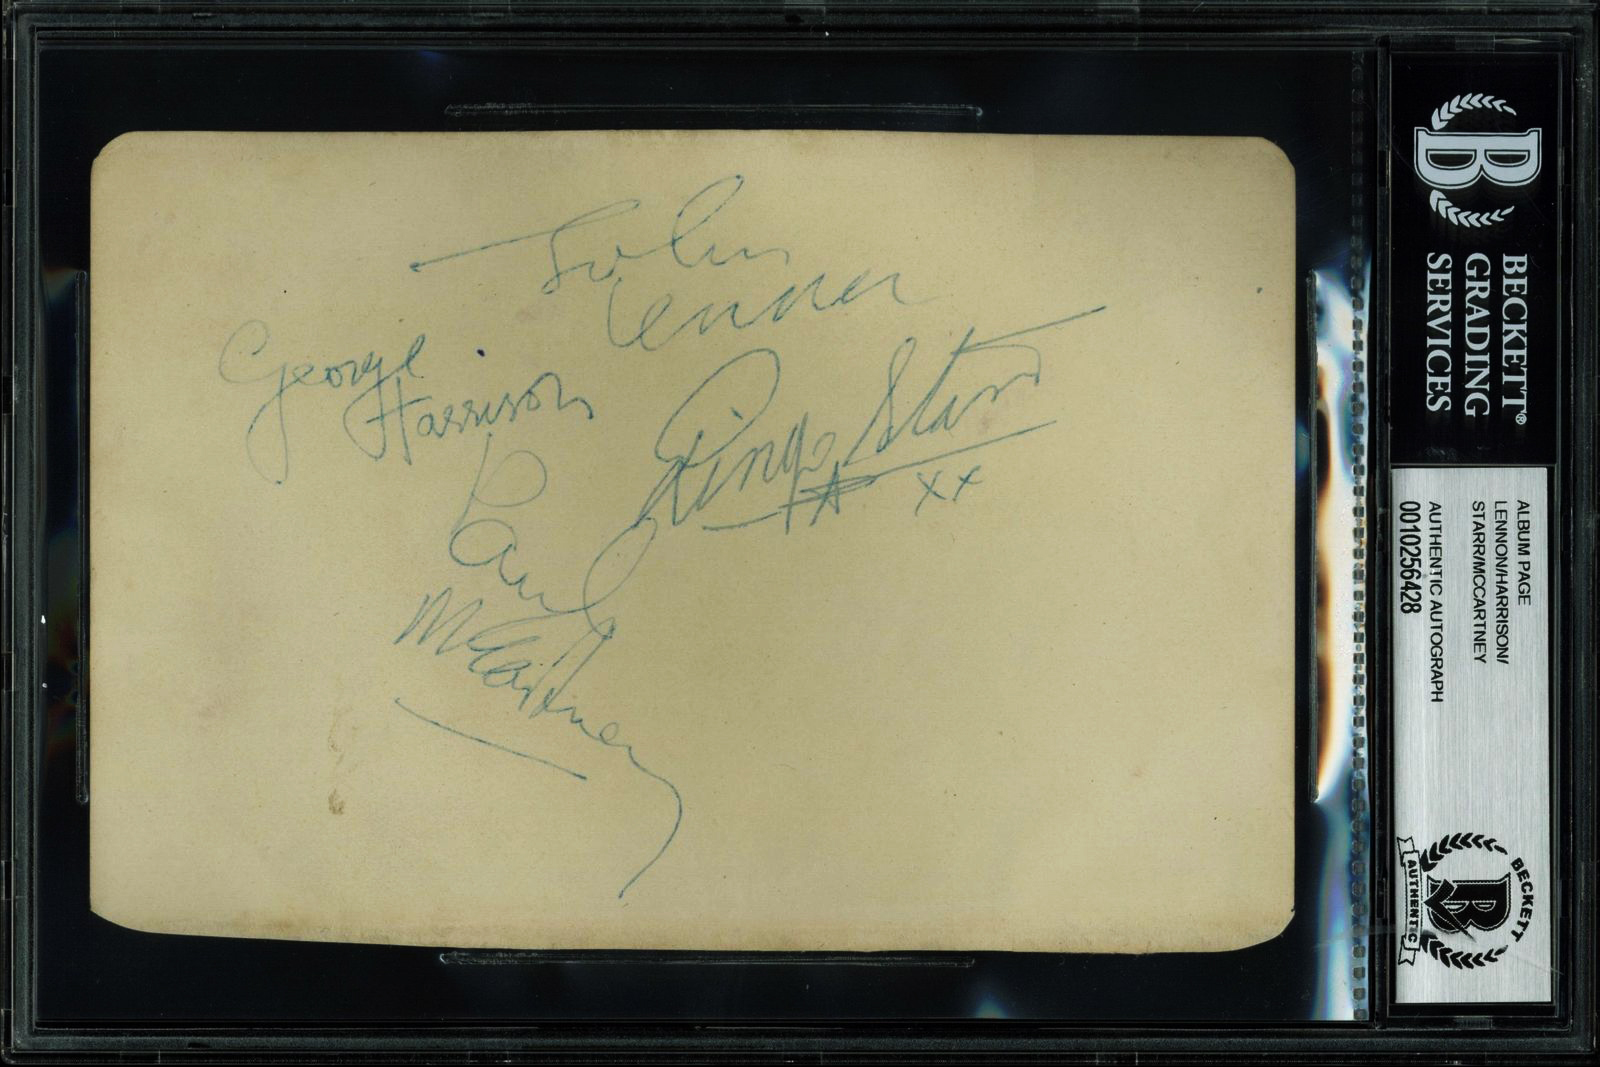 John
Lennon
George
Harrison
Ringo Starr
xx
Paul
McCartney
B
BECKETT®
GRADING
SERVICES
ALBUM PAGE
LENNON/HARRISON/
STARR/MCCARTNEY
AUTHENTIC AUTOGRAPH
0010256428
BECKETT
B
AUTHENTIC